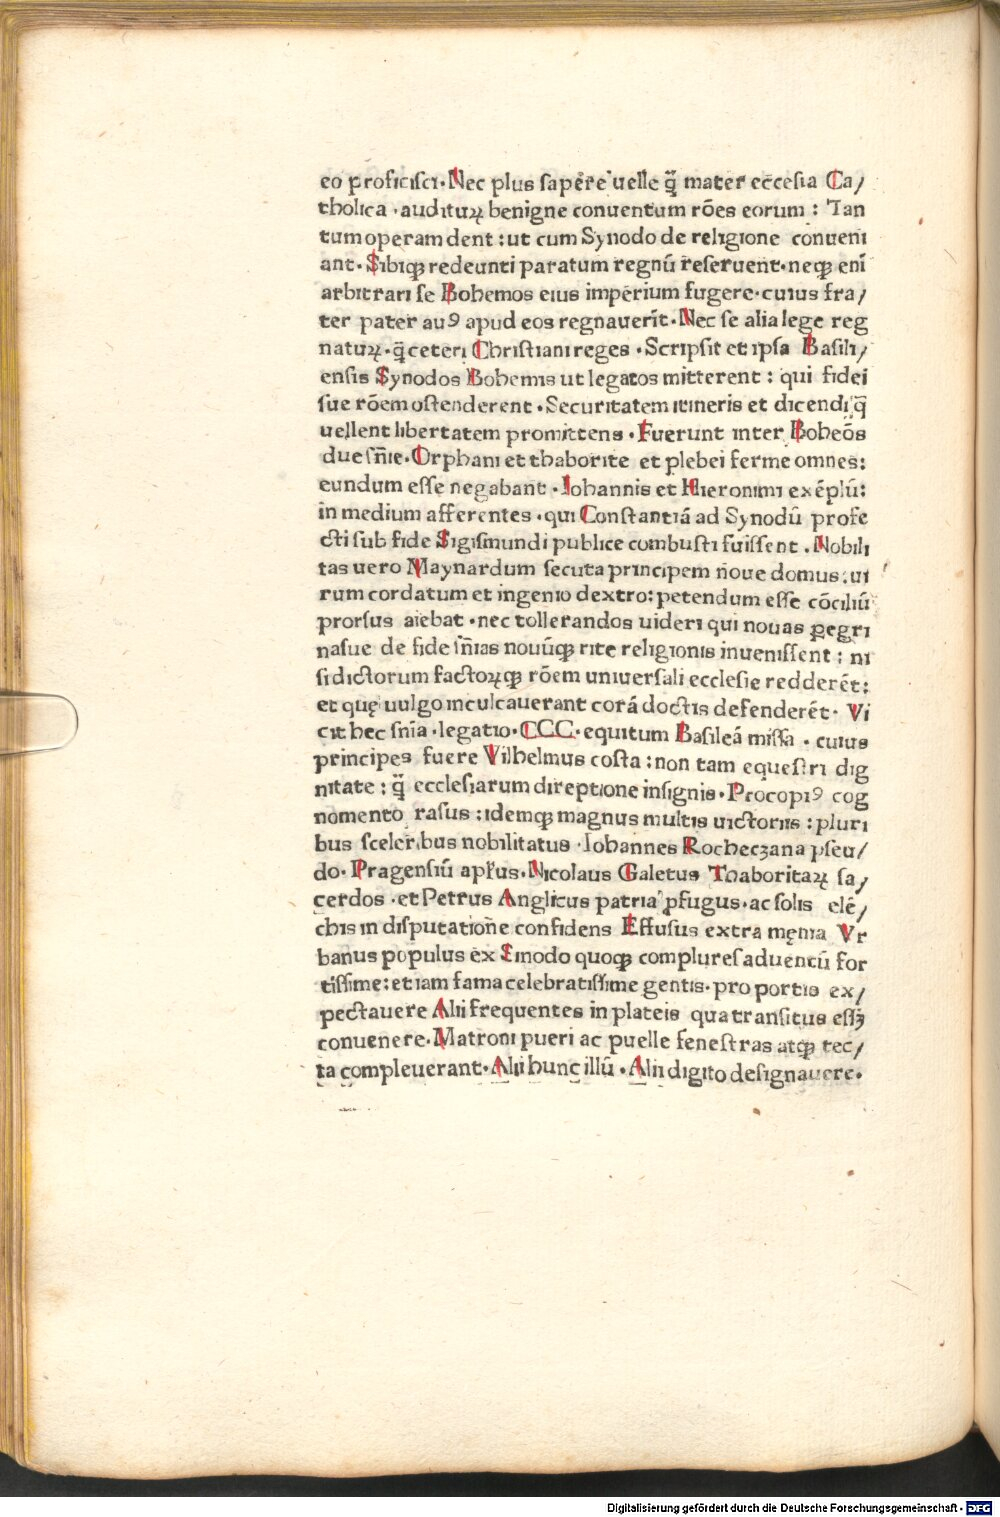 eo proficisci·Nec plus sapere uelle q̃ mater ecclesia Ca/
tholica·audituꝝ benigne conuentum rões eorum : Tan
tum operam dent : ut cum Synodo de religione conueni
ant·Sibiqꝫ redeunti paratum regnũ reseruent·neqꝫ enĩ
arbitrari se Bohemos eius imperium fugere·cuius fra/
ter pater auꝰ apud eos regnauerĩt·Nec se alia lege reg
naturꝝ·q̃ ceteri Christiani reges·Scripsit et ipsa Basili/
ensis Synodos Bohemis ut legatos mitterent : qui fidei
sue rõem ostenderent·Securitatem itineris et dicendi q̃
uellent libertatem promittens·Fuerunt inter Boheõs
due sñie·Orphani et thaborite et plebei ferme omnes:
eundum esse negabant·Iohannis et Hieronimi exẽplũ:
in medium afferentes·qui Constantiã ad Synodũ profe
cti sub fide Sigismundi publice combusti fuissent·Nobili
tas uero Maynardum secuta principem noue domus:ui
rum cordatum et ingenio dextro:petendum esse cõciliũ
prorsus aiebat·nec tollerandos uideri qui nouas ꝑegri
nasue de fide sñias nouũqꝫ rite religionis inuenissent : ni
si dictorum factorꝝqꝫ rõem uniuersali ecclesie redderẽt:
et quę uulgo inculcauerant corã doctis defenderẽt· Vi
cit hec snia·legatio·CCC·equitum Basileã missa·cuius
principes fuere Vilhelmus costa : non tam equestri dig
nitate : q̃ ecclesiarum direptione insignis·Procopiꝰ cog
nomento rasus : idemqꝫ magnus multis uictoriis : pluri
bus sceleribus nobilitatus·Iohannes Rocheczana pseu/
do·Pragensiũ apl'us·Nicolaus Galetus Thaboritaꝝ sa/
cerdos·et Petrus Anglicus patria ꝓfugus·ac solis elẽ/
chis in disputatione confidens Effusus extra męnia Vr
banus populus ex Sinodo quoqꝫ complures aduentũ for
tissime:et iam fama celebratissime gentis·pro portis ex/
pectauere Alii frequentes in plateis qua transitus essꝫ
conuenere·Matroni pueri ac puelle fenestras atqꝫ tec/
ta compleuerant·Alii hunc illũ·Alii digito designauere·
Digitalisierung gefördert durch die Deutsche Forschungsgemeinschaft - DFG